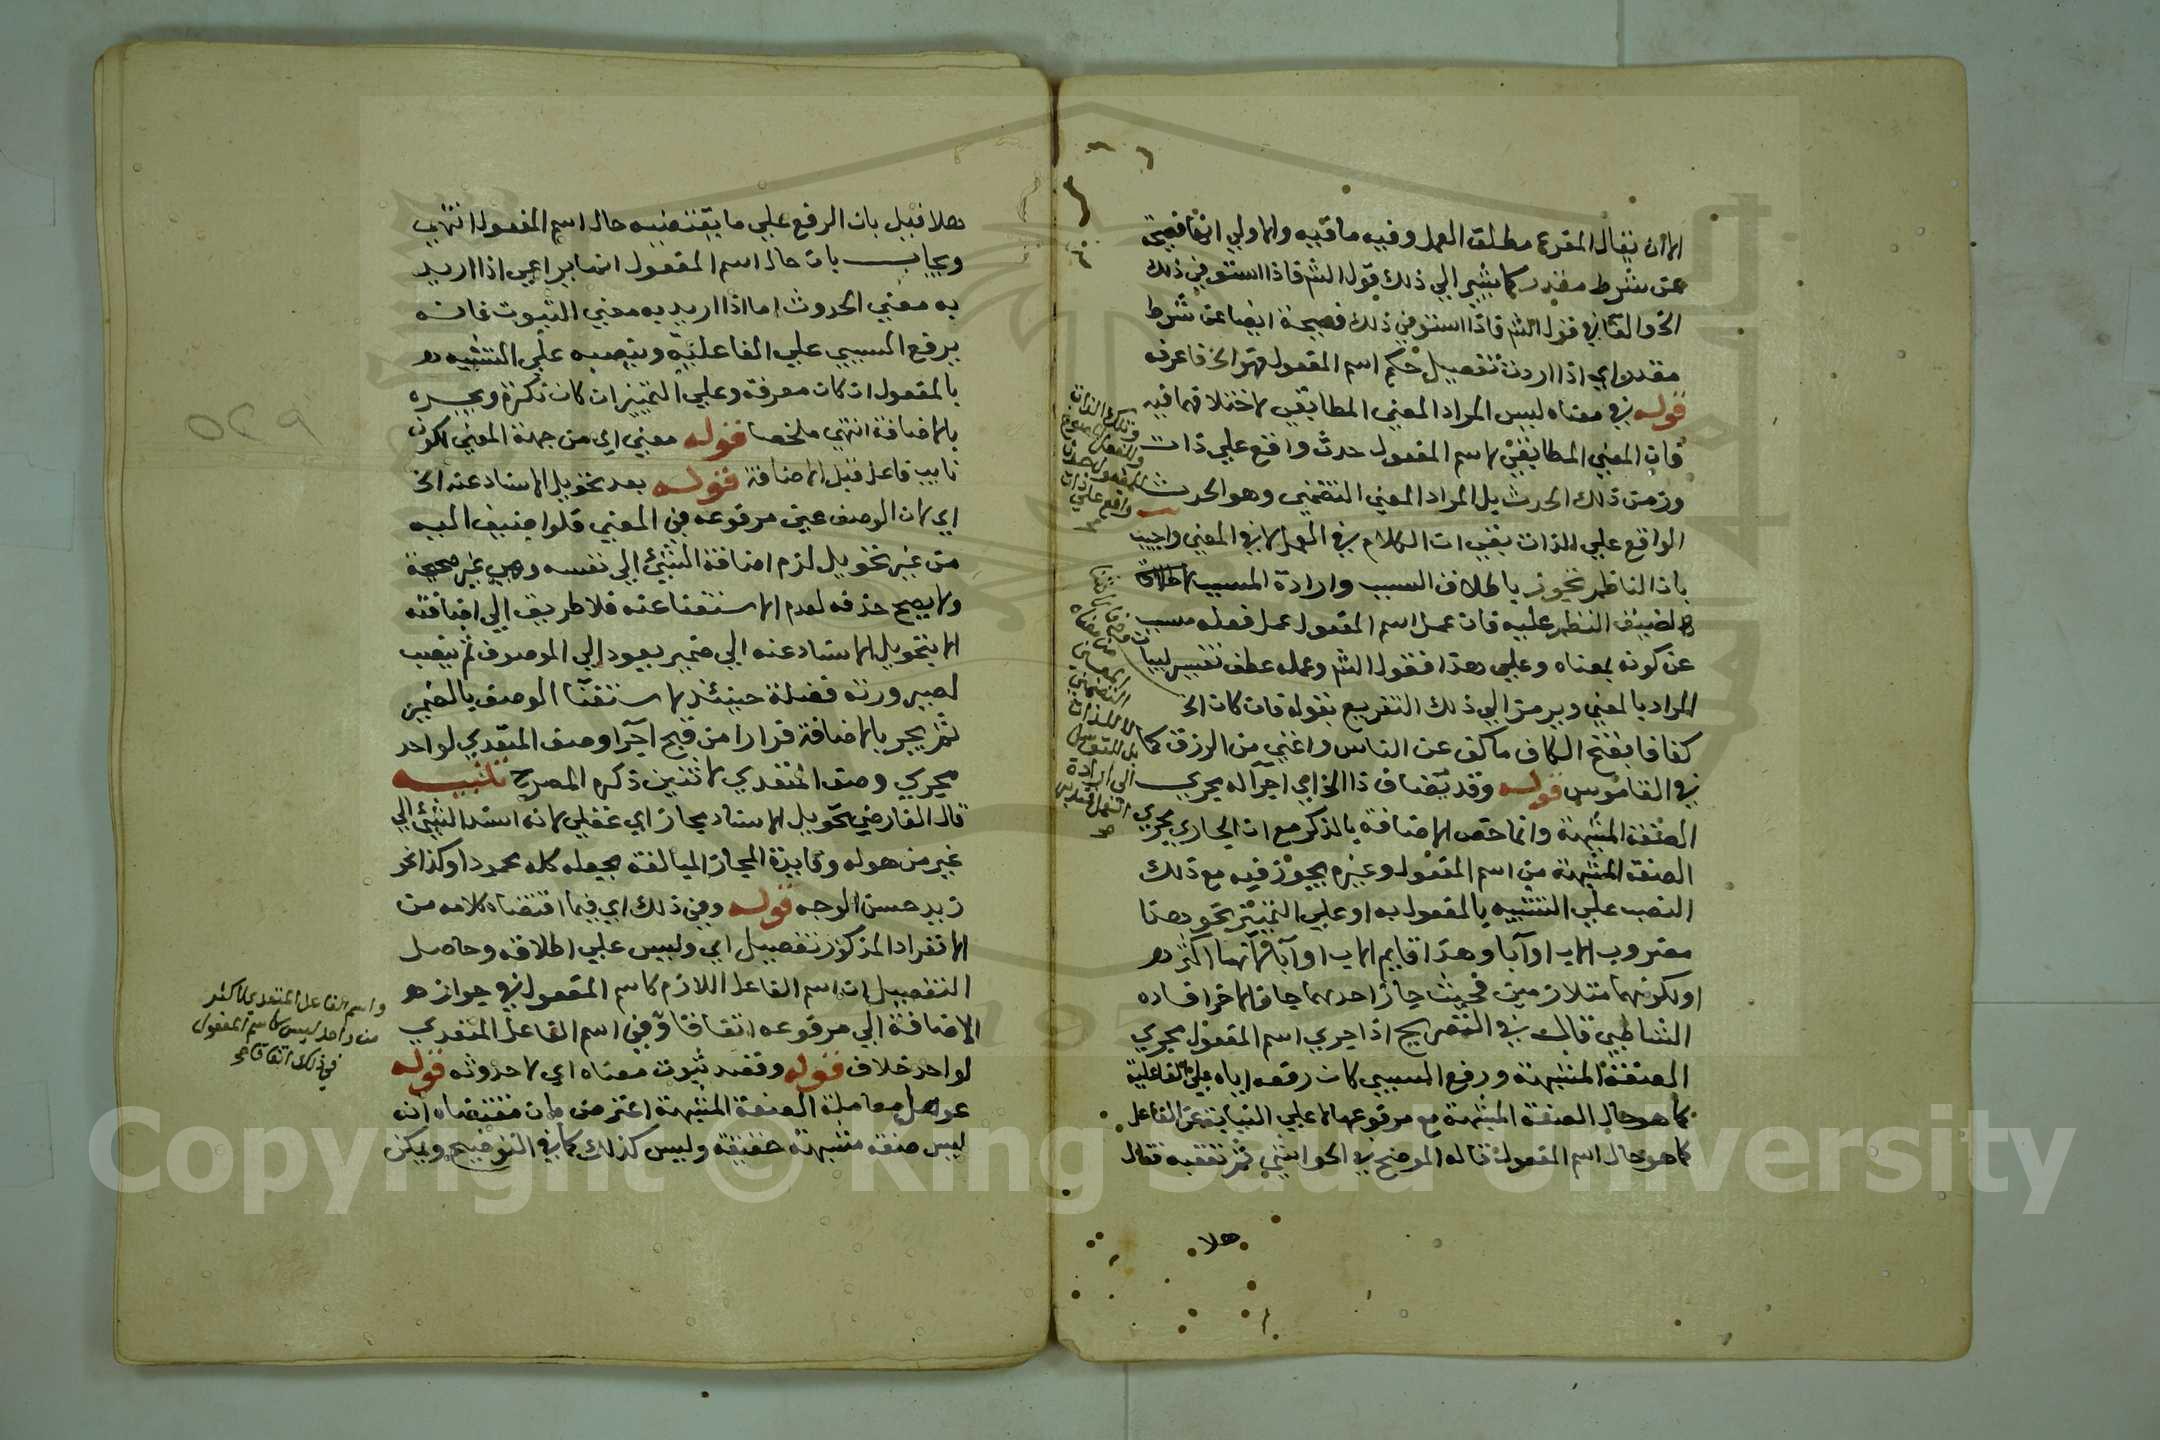 الا ان يقال المفرع مطلق العمل وفيه ما فيه والاولي انها فصيحة
عن شرط مقدر كما يشير الي ذلك قول الشم فاذا استوفي ذلك
الخ والفا في قول الشم فاذا استوفي ذلك فصيحة ايضا عن شرط
مقدر اي اذا اردت تفصيل حكم اسم المفعول فهو الخ فاعرفه
قوله في معناه ليس المراد المعني المطابقي لاختلافهما فيه
فان المعني المطابقي لاسم المفعول حدث واقع علي ذات
وزمن ذلك الحدث بل المراد المعني التضمني وهو الحدث
الواقع علي الذات بقي ان الكلام في العمل لا في المعني واجيب
بان الناظم تجوز باطلاق السبب وارادة المسبب لاطلاق
لضيق النظم عليه فان عمل اسم المفعول عمل فعله مسبب
عن كونه بمعناه وعلي هذا فقول الشم وعمله عطف تفسير لبيان
المراد بالمعني ويرمز الي ذلك التفريع بقوله فان كان الخ
كفافا بفتح الكاف ما كف عن الناس واغني من الرزق كما
في القاموس قوله وقد يضاف ذا الخ اي اجرآ له مجري
الصفة المشبهة وانما خص الاضافة بالذكر مع ان الجاري مجري
الصفة المشبهة من اسم المفعول وغيره يجوز فيه مع ذلك
النصب علي التشبيه بالمفعول به او علي التمييز نحو هذا
مضروب الاب او آبا وهذا قايم الاب او آبا لانها اكثر
او لكونهما متلازمين فحيث جاز احدهما جاز الاخر افاده
الشاطبي قال في التصريح اذا اجري اسم المفعول مجري
الصفة المشبهة ورفع السببي كان رفعه اياه علي الفاعلية
كما هو حال الصفة المشبهة مع مرفوعها لا علي النيابة عن الفاعل
كما هو حال اسم المفعول قاله الموضح في الحواشي ثم تعقبه فقال
هلا
وتلك الذات
واقع علي ذات
هلا قيل بان الرفع علي ما يقتضيه حال اسم المفعول انتهي
ويجاب بان حال اسم المفعول انما يراعي اذا اريد
به معني الحدوث اما اذا اريد به معني الثبوت فانه
يرفع السببي علي الفاعلية وينصبه علي التشبيه
بالمفعول ان كان معرفة وعلي التمييز ان كان نكرة ويجره
بالاضافة انتهي ملخصا قوله معني اي من جهة المعني لكونه
نايب فاعل قبل الاضافة قوله بعد تحويل الاسناد عنه الخ
اي لان الوصف عين مرفوعه في المعني فلو اضيف اليه
من غير تحويل لزم اضافة الشيئ الي نفسه وهي غير صحيحة
ولا يصح حذفه لعدم الاستغنا عنه فلا طريق الي اضافته
الا بتحويل الاسناد عنه الي ضمير يعود الي الموصوف ثم ينصب
لصيرورته فضلة حينئذ لاستغنآ الوصف بالضمير
ثم يجر بالاضافة فرارا من قبح اجرآ وصف المتعدي لواحد
مجري وصف المتعدي لاثنين ذكره المصرح تنبيه
قال الفارضي تحويل الاسناد مجاز اي عقلي لانه اسند الشيئ الي
غير من هو له وفايدة المجاز المبالغة بجعله كله محمودا وكذا نحو
زيد حسن الوجه قوله وفي ذلك اي فيما اقتضاه كلامه من
الانفراد المذكور تفصيل اي وليس علي اطلاقه وحاصل
التفصيل ان اسم الفاعل اللازم كاسم المفعول في جواز
الاضافة الي مرفوعه اتفاقا وفي اسم الفاعل المتعدي
لواحد خلاف قوله وقصد ثبوت معناه اي لا حدوثه قوله
عومل معاملة الصفة المشبهة اعترض بان مقتضاه انه
ليس صفة مشبهة حقيقة وليس كذلك كما في التوضيح ويمكن
واسم الفاعل المتعدي لاكثر
من واحد ليس كاسم المفعول
في ذلك اتفاقا
Copyright © King Saud University